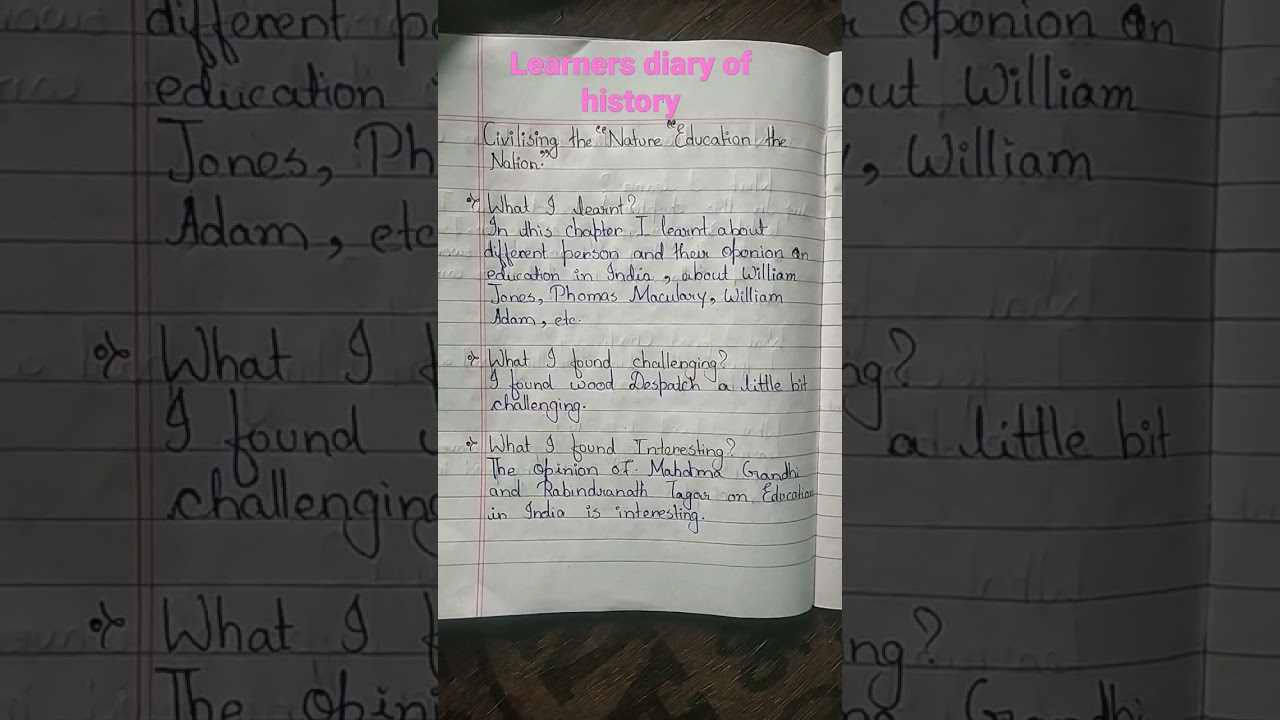 Learners diary of
history
Civilising the "Nature "Education the
Nation."
What I learnt?
In this chapter I learnt about
different person and their oponion on
education in India, about William
Jones, Phomas Maculary, William
Adam, etc.
What I found challenging?
I found wood Despatch a little bit
challenging.
What I found Interesting?
The opinion of Mahdma Grandhi
and Rabindranath Tagar on Education
in India is interesting.